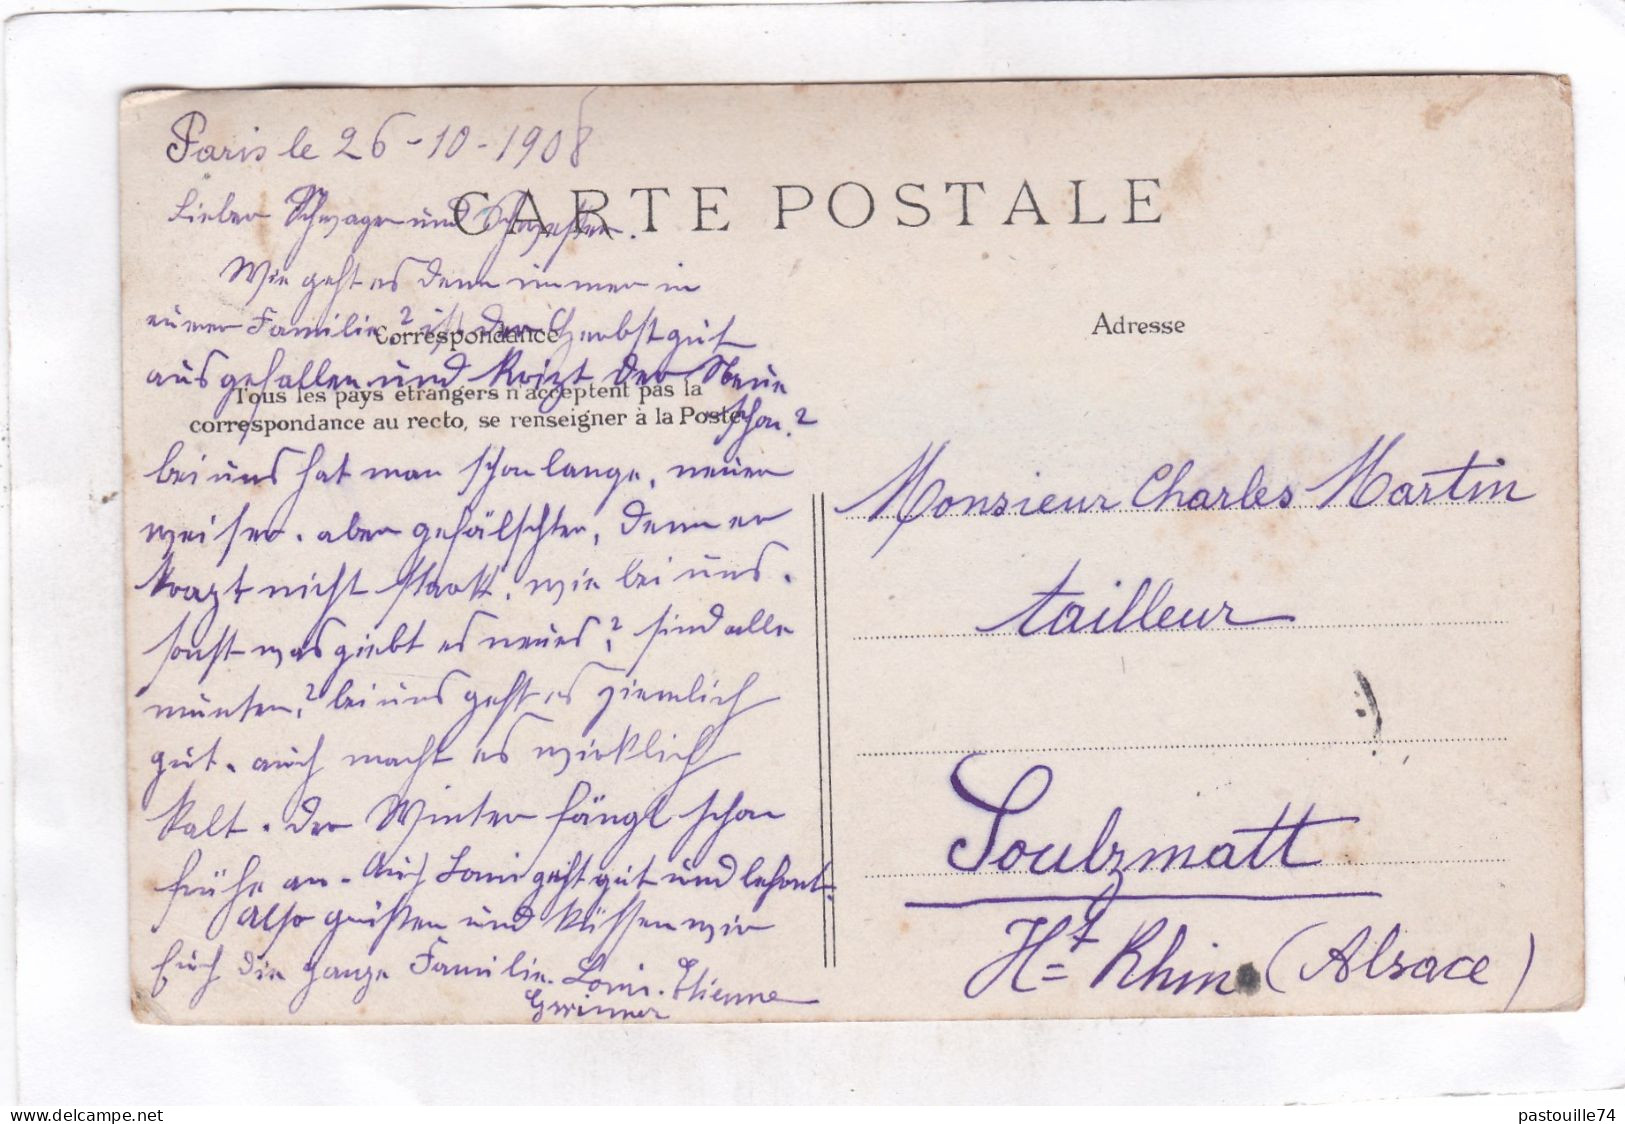 Paris le 26-10-1908
CARTE POSTALE
Lieber Schwager und Schwester.
Wie geht es denn immer in
eurer Familie? ist der Herbst gut
Correspondance
ausgefallen und krizt der Neue
schon?
Tous les pays étrangers n'acceptent pas la
correspondance au recto, se renseigner à la Poste
bei uns hat man schon lange, neuen
weiser. aber gefälschten, denn er
krazt nicht stark. wie bei uns.
sonst was giebt es neues? sind alle
munter? bei uns geht es ziemlich
gut. auch macht es wirklich
kalt. der Winter fängt schon
frühe an. Auch Loui geht gut und lehrnt.
Also grüßen und küssen wir
Euch die ganze Familie. Loui. Etienne
Gwinner
Adresse
Monsieur Charles Martin
tailleur
Soulzmatt
Ht Rhin (Alsace)
pastouille74